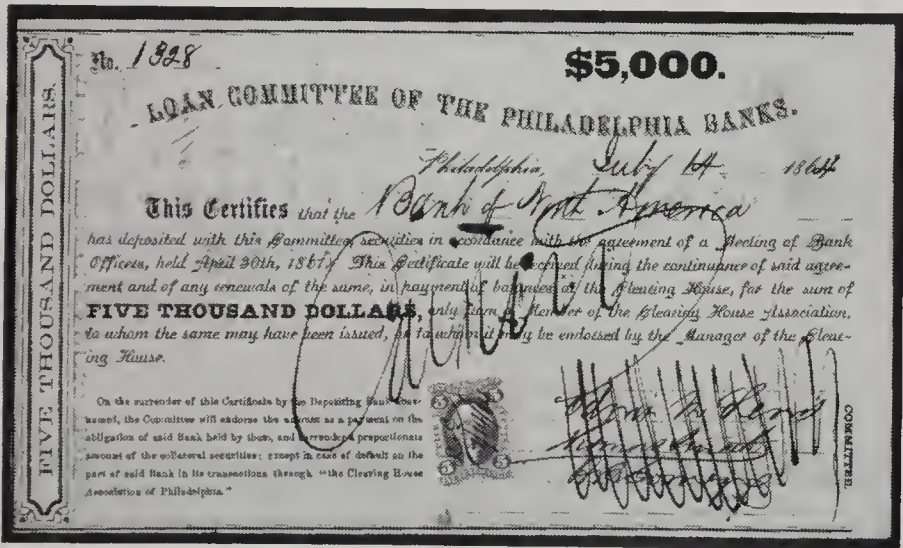 FIVE THOUSAND DOLLARS.
No. 1328
$5,000.
LOAN COMMITTEE OF THE PHILADELPHIA BANKS.
Philadelphia, July 14 1864
This Certifies that the Bank of North America
has deposited with this Committee, securities in accordance with the agreement of a Meeting of Bank
Officers, held April 30th, 1861. This Certificate will be received during the continuance of said agree-
ment and of any renewals of the same, in payment of balances at the Clearing House, for the sum of
FIVE THOUSAND DOLLARS, only from a Member of the Clearing House Association,
to whom the same may have been issued, or to whom it may be endorsed by the Manager of the Clear-
ing House.
On the surrender of this Certificate by the Depositing Bank above
named, the Committee will endorse the amount as a payment on the
obligation of said Bank held by them, and surrender a proportionate
amount of the collateral securities; except in case of default on the
part of said Bank in its transactions through "the Clearing House
Association of Philadelphia."
COMMITTEE.